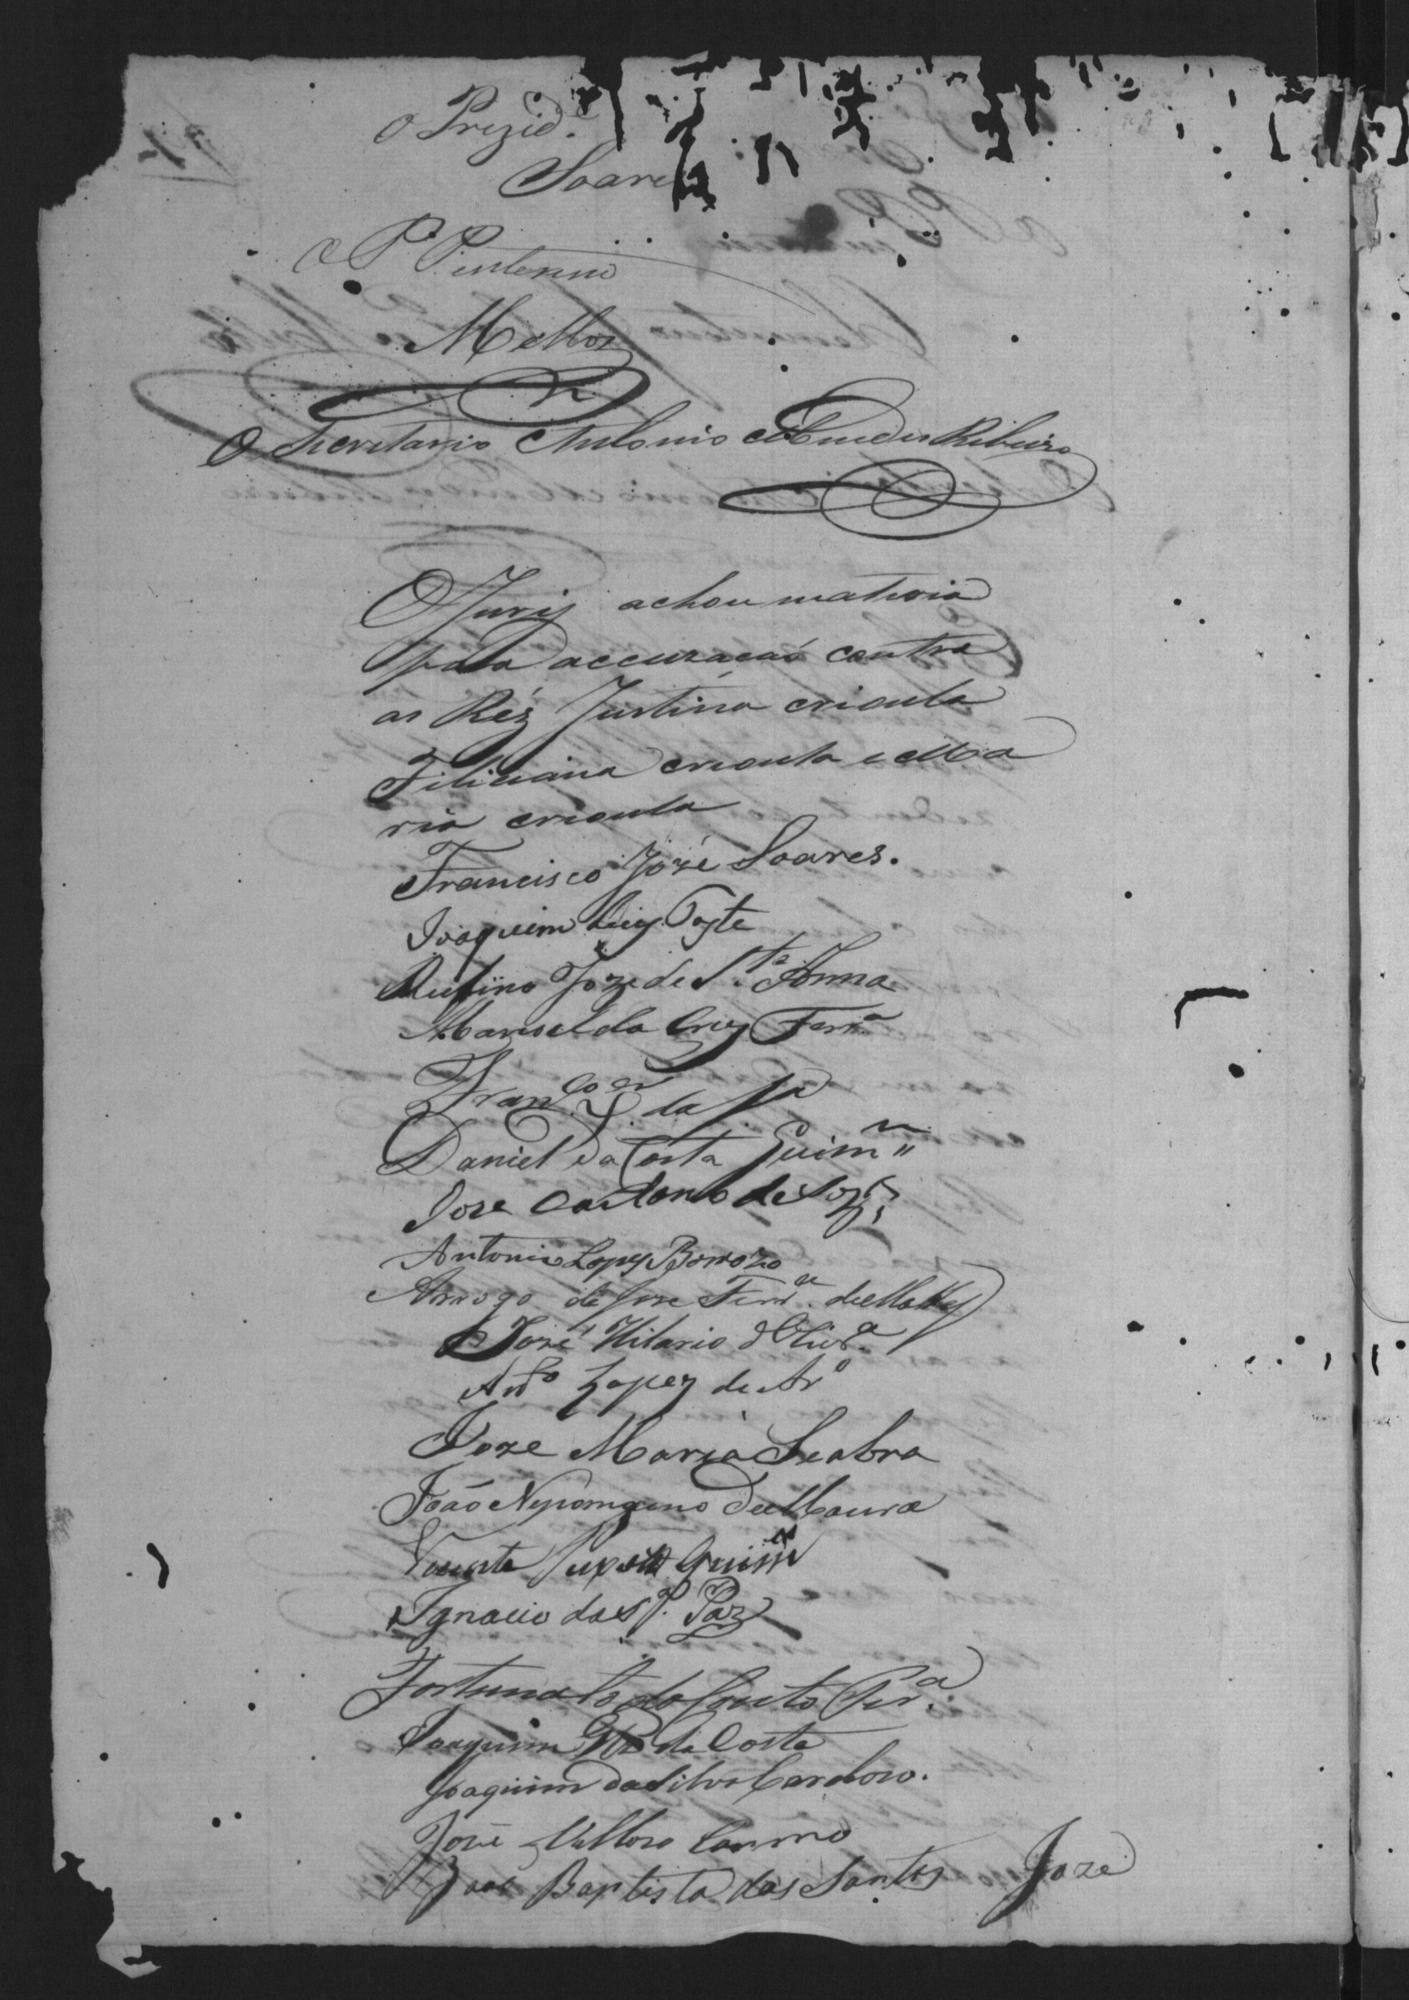 O Prezid.e
Soares
O P. Interino
Mellos
O Secretario Antonio Mendes Ribeiro
O Juri achou materia
para accuzação contra
as Rés Justina crioula
Filiciana crioula e Ma
ria crioula
Francisco Jozé Soares.
Joaquim Luiz Coste
Rufino Joze de S.ta Anna
Manoel da Cruz Ferr.a
Fran.co da S.a
Daniel da Costa Guim.es
Jose Cardozo de
Antonio Lopes Barrozo
Arrogo de Jose Ferr.a de Mattos
José Hilario d'Oliv.a
Ant.o Lopez de Ar.o
Joze Maria Seabra
João Nepomuceno de Moura
Vicente Guim.es
Ignacio da S.a Paz
Fortunato do Couto Per.a
Joaquim da Costa
Joaquim da Silva Cardozo.
José Vellozo Carmo
João Baptista dos Santos Joze